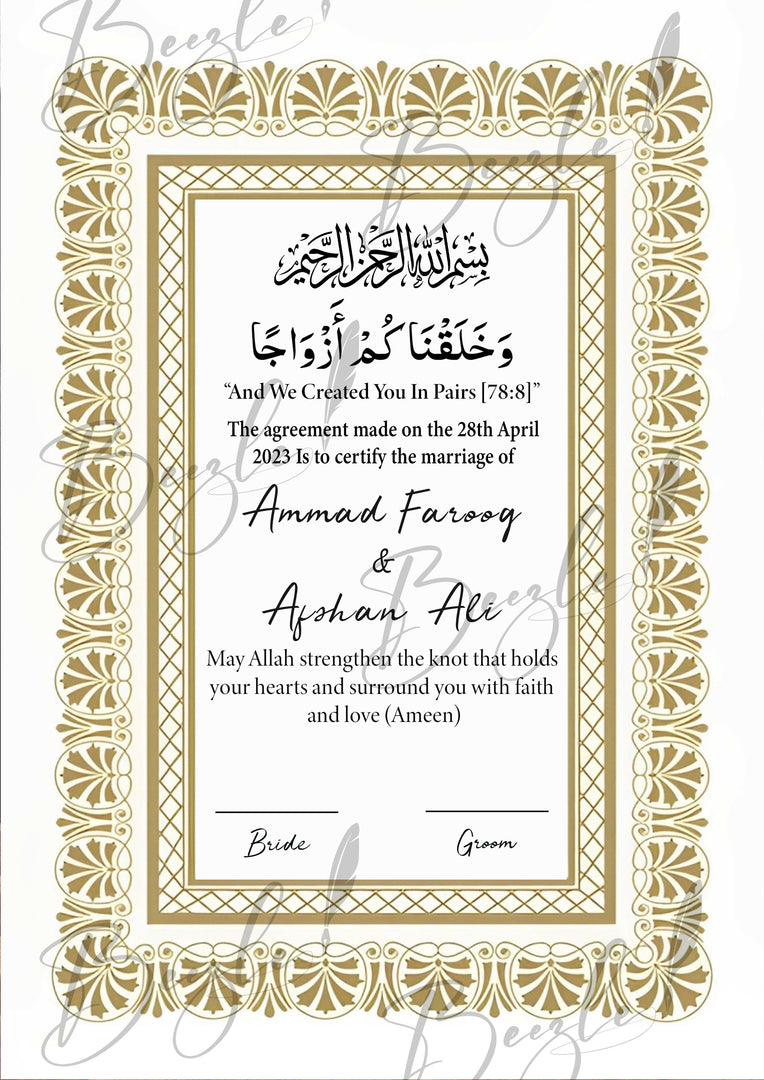 Beezle
Beezle
بِسْمِ اللهِ الرَّحْمٰنِ الرَّحِيْمِ
وَخَلَقْنَا كُمْ أَزْوَاجًا
“And We Created You In Pairs [78:8]”
The agreement made on the 28th April
2023 Is to certify the marriage of
Beezle
Ammad Farooq
&
Beezle
Afshan Ali
May Allah strengthen the knot that holds
your hearts and surround you with faith
and love (Ameen)
Bride Groom
Beezle
Beezle